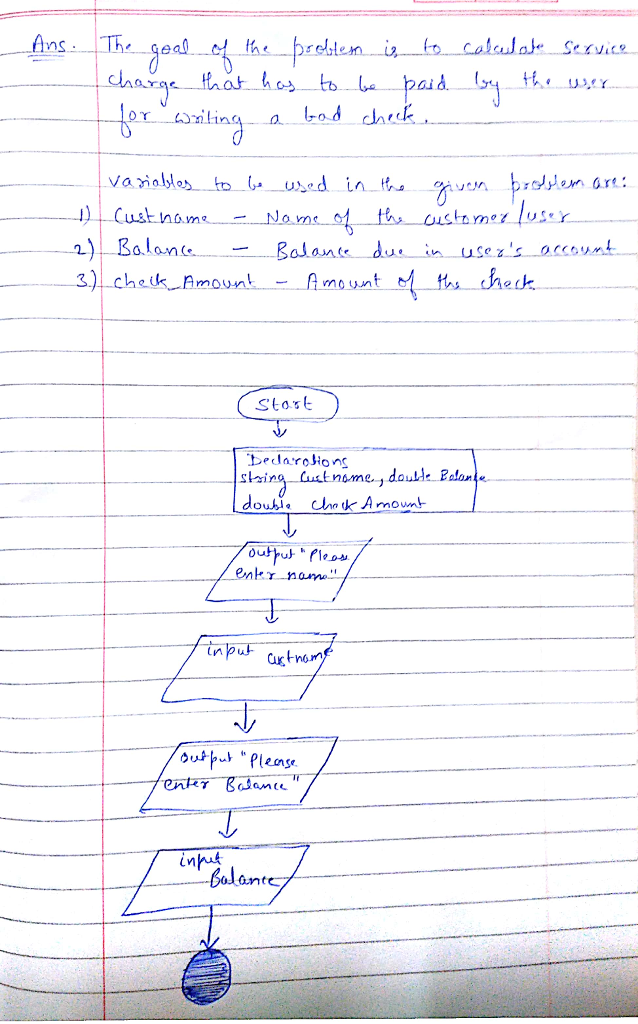 Ans. The goal of the problem is to calculate service
charge that has to be paid by the user
for writing a bad check.
variables to be used in the given problem are:
1) Custname - Name of the customer/user
2) Balance - Balance due in user's account
3.) check_Amount - Amount of the check
Start
Declarations
string Custname, double Balance
double check Amount
output "Please
enter name"
input custname
output "Please
enter Balance"
input
Balance